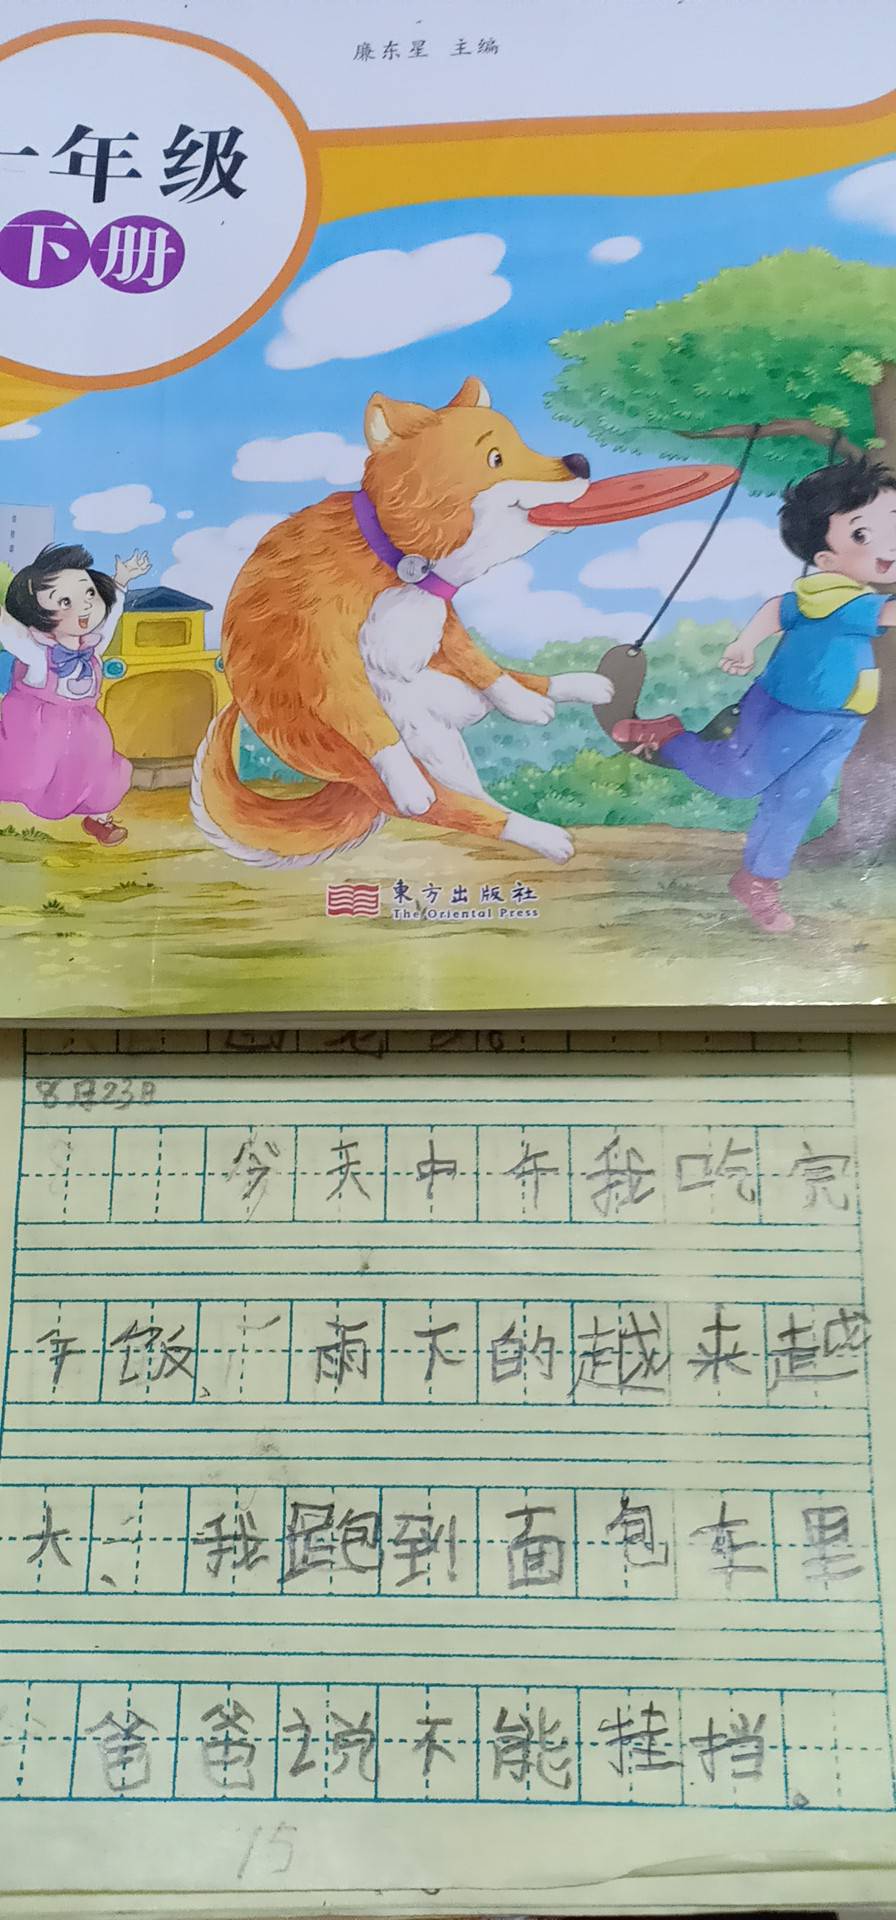 廉东星 主编
一年级
下册
東方出版社
The Oriental Press
8月23日
今天中午我吃完
午饭、雨下的越来越
大、我跑到面包车里
爸爸说不能挂挡。
15